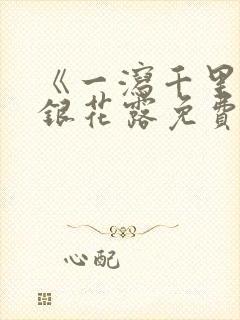 《一瀉千里
銀花露免費
心配